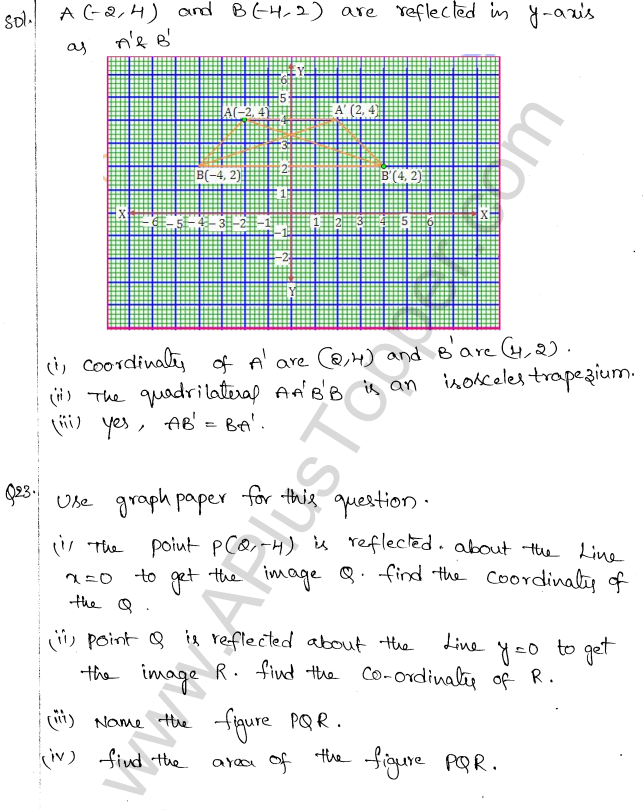 Sol. A(-2,4) and B(-4,2) are reflected in y-axis
as A' & B'
Y
6
5
A(−2, 4) A' (2, 4)
4
3
B(−4, 2) 2 B'(4, 2)
1
X −6 −5 −4 −3 −2 −1 1 2 3 4 5 6 X
−1
−2
Y
(i) Coordinates of A' are (2,4) and B' are (4,2).
(ii) The quadrilateral AA'B'B is an isosceles trapezium.
(iii) Yes, AB' = BA'.
Q23. Use graph paper for this question.
(i) The point P(2,-4) is reflected. about the Line
x=0 to get the image Q. find the coordinates of
the Q.
(ii) point Q is reflected about the Line y=0 to get
the image R. find the Co-ordinates of R.
(iii) Name the figure PQR.
(iv) find the area of the figure PQR.
www.APlusTopper.com